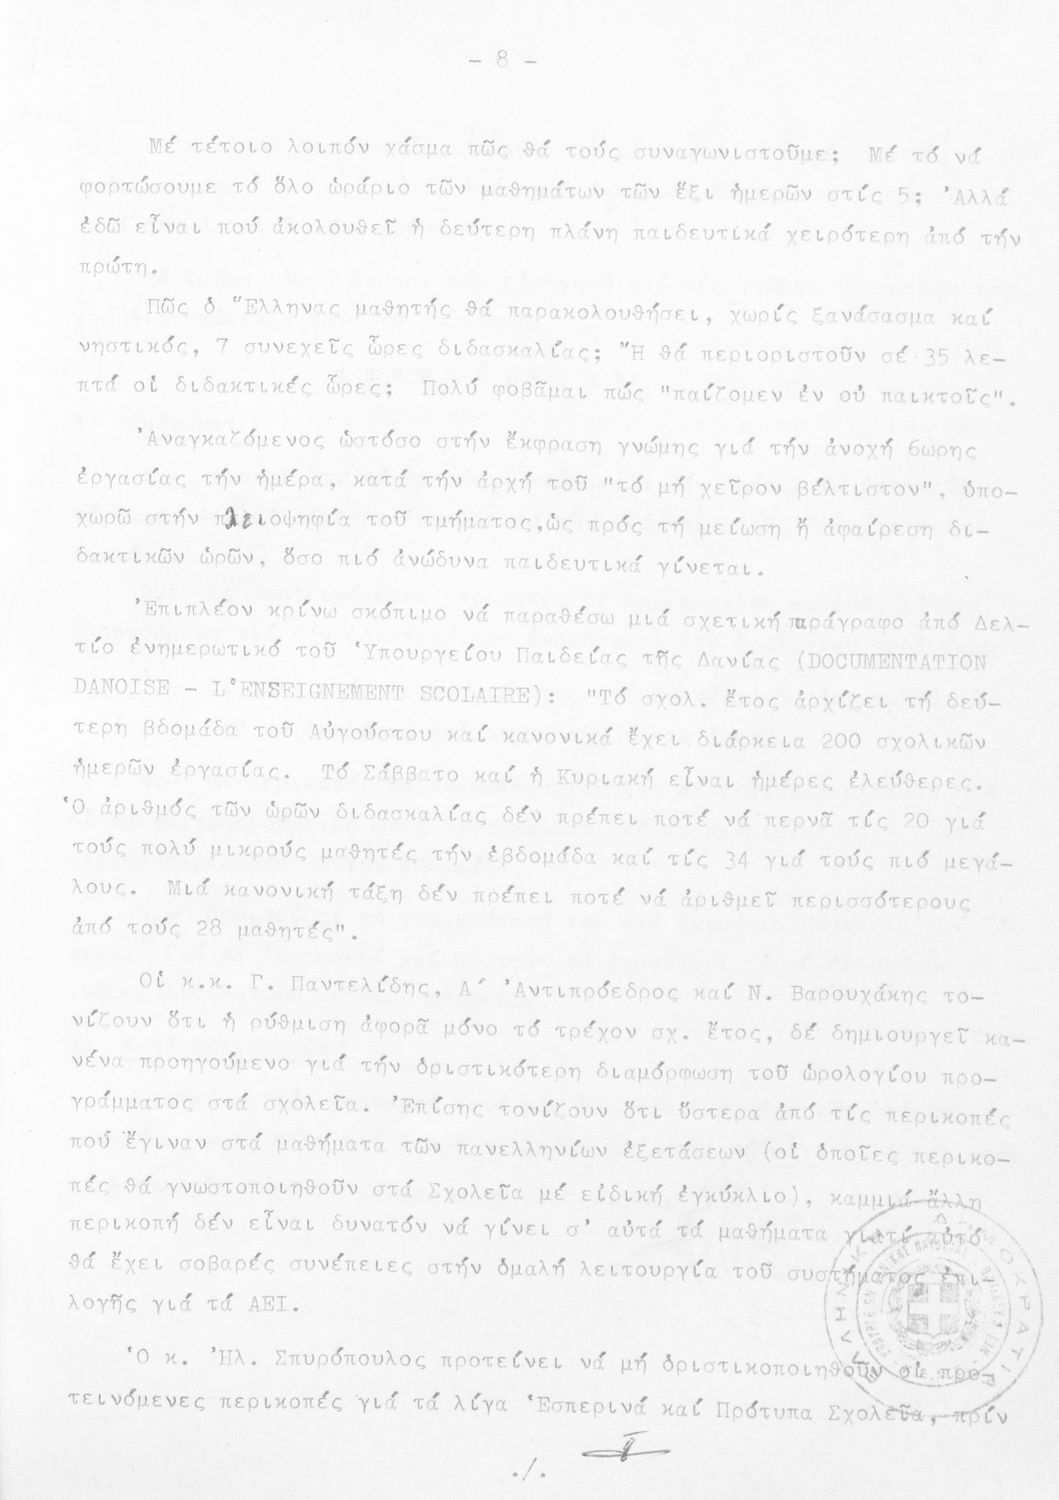 - 8 -
Μέ τέτοιο λοιπόν χάσμα πῶς θά τούς συναγωνιστοῦμε; Μέ τό νά
φορτώσουμε τό ὅλο ὡράριο τῶν μαθημάτων τῶν ἕξι ἡμερῶν στίς 5; Ἀλλά
ἐδῶ εἶναι πού ἀκολουθεῖ ἡ δεύτερη πλάνη παιδευτικά χειρότερη ἀπό τήν
πρώτη.
Πῶς ὁ Ἕλληνας μαθητής θά παρακολουθήσει, χωρίς ξανάσασμα καί
νηστικός, 7 συνεχεῖς ὧρες διδασκαλίας; Ἤ θά περιοριστοῦν σέ 35 λε-
πτά οἱ διδακτικές ὧρες; Πολύ φοβᾶμαι πώς "παίζομεν ἐν οὐ παικτοῖς".
Ἀναγκαζόμενος ὡστόσο στήν ἔκφραση γνώμης γιά τήν ἀνοχή 6ωρης
ἐργασίας τήν ἡμέρα, κατά τήν ἀρχή τοῦ "τό μή χεῖρον βέλτιστον", ὑπο-
χωρῶ στήν πλειοψηφία τοῦ τμήματος,ὡς πρός τή μείωση ἤ ἀφαίρεση δι-
δακτικῶν ὡρῶν, ὅσο πιό ἀνώδυνα παιδευτικά γίνεται.
Ἐπιπλέον κρίνω σκόπιμο νά παραθέσω μιά σχετική παράγραφο ἀπό Δελ-
τίο ἐνημερωτικό τοῦ Ὑπουργείου Παιδείας τῆς Δανίας (DOCUMENTATION
DANOISE - L'ENSEIGNEMENT SCOLAIRE): "Τό σχολ. ἔτος ἀρχίζει τή δεύ-
τερη βδομάδα τοῦ Αὐγούστου καί κανονικά ἔχει διάρκεια 200 σχολικῶν
ἡμερῶν ἐργασίας. Τό Σάββατο καί ἡ Κυριακή εἶναι ἡμέρες ἐλεύθερες.
Ὁ ἀριθμός τῶν ὡρῶν διδασκαλίας δέν πρέπει ποτέ νά περνᾶ τίς 20 γιά
τούς πολύ μικρούς μαθητές τήν ἑβδομάδα καί τίς 34 γιά τούς πιό μεγά-
λους. Μιά κανονική τάξη δέν πρέπει ποτέ νά ἀριθμεῖ περισσότερους
ἀπό τούς 28 μαθητές".
Οἱ κ.κ. Γ. Παντελίδης, Α΄ Ἀντιπρόεδρος καί Ν. Βαρουχάκης το-
νίζουν ὅτι ἡ ρύθμιση ἀφορᾶ μόνο τό τρέχον σχ. ἔτος, δέ δημιουργεῖ κα-
νένα προηγούμενο γιά τήν ὁριστικότερη διαμόρφωση τοῦ ὡρολογίου προ-
γράμματος στά σχολεῖα. Ἐπίσης τονίζουν ὅτι ὕστερα ἀπό τίς περικοπές
πού ἔγιναν στά μαθήματα τῶν πανελληνίων ἐξετάσεων (οἱ ὁποῖες περικο-
πές θά γνωστοποιηθοῦν στά Σχολεῖα μέ εἰδική ἐγκύκλιο), καμμιά ἄλλη
περικοπή δέν εἶναι δυνατόν νά γίνει σ' αὐτά τά μαθήματα γιατί αὐτό
θά ἔχει σοβαρές συνέπειες στήν ὁμαλή λειτουργία τοῦ συστήματος ἐπι-
λογῆς γιά τά ΑΕΙ.
Ὁ κ. Ἠλ. Σπυρόπουλος προτείνει νά μή ὁριστικοποιηθοῦν οἱ προ-
τεινόμενες περικοπές γιά τά λίγα Ἑσπερινά καί Πρότυπα Σχολεῖα, πρίν
./.